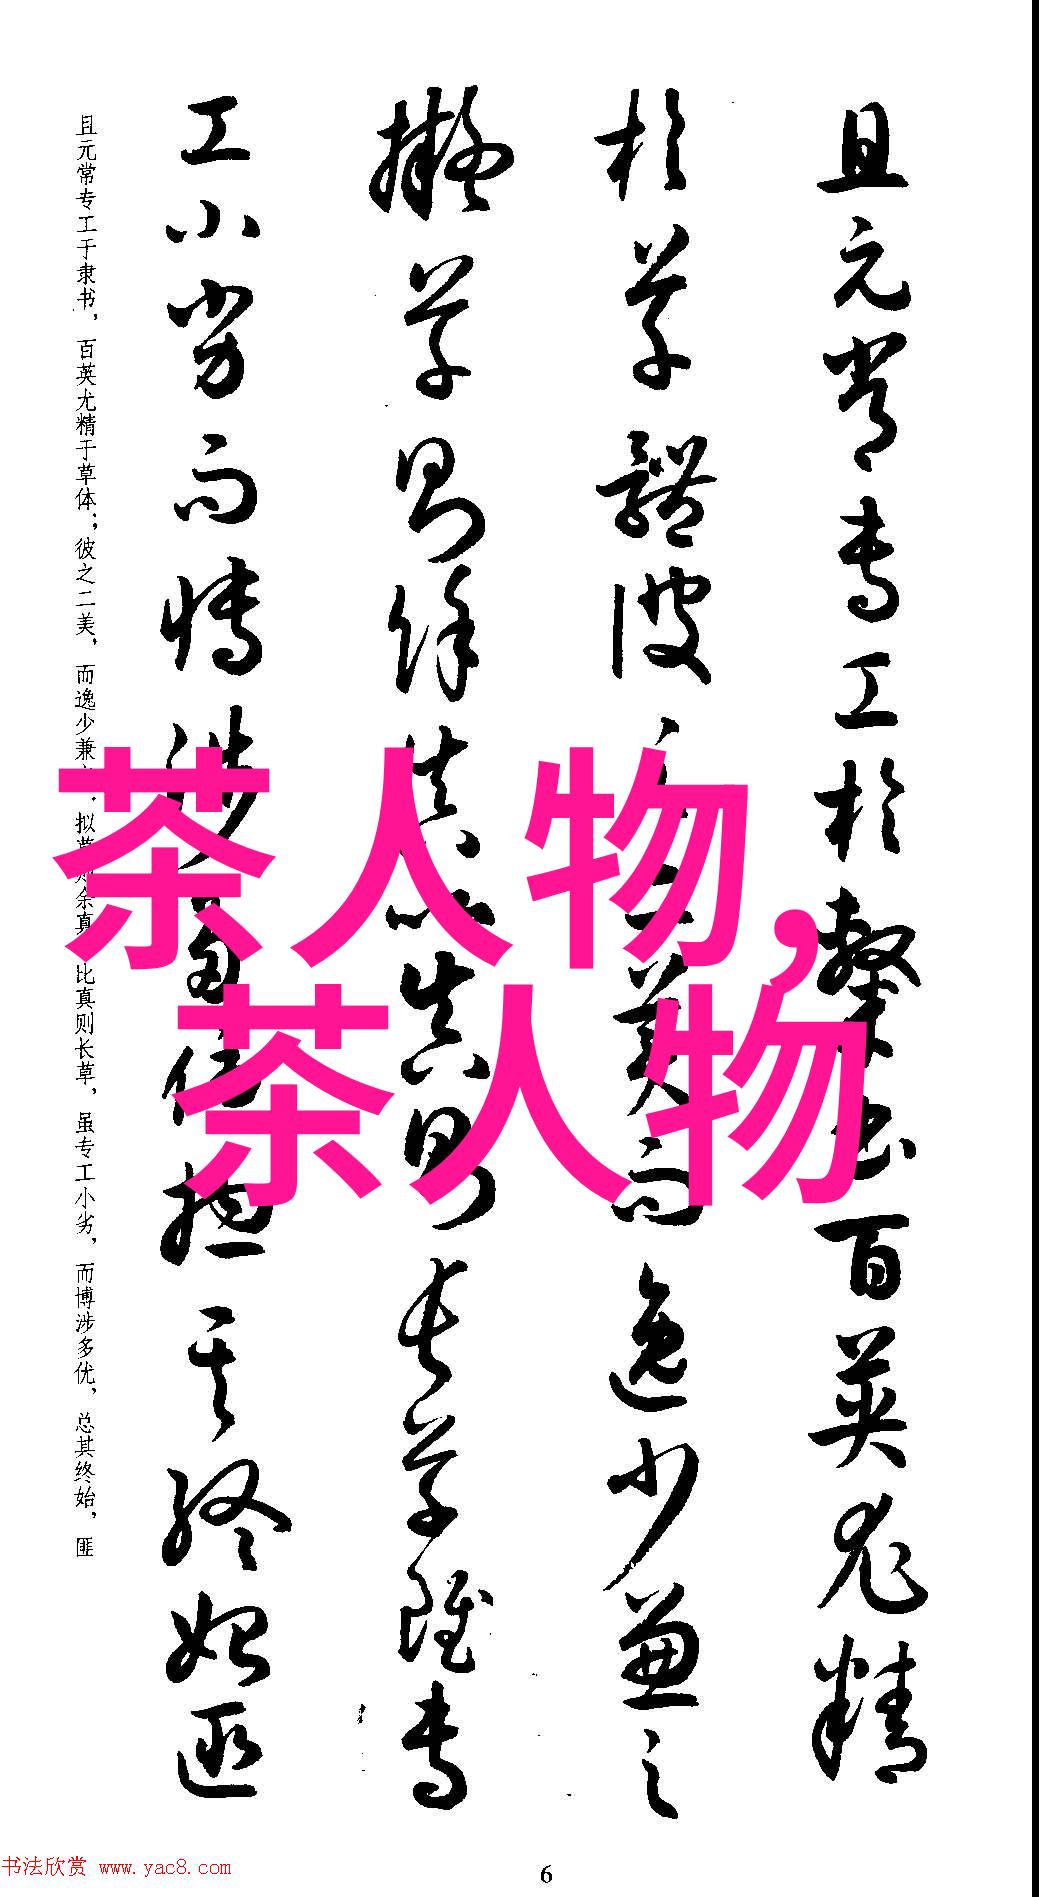 且元常專工於隸書百英尤精
於草體彼之二美而逸少兼之
擬草則餘真比真則長草雖專
工小劣而博涉多優揔其終始匪
且元常专工于隶书，百英尤精于草体；彼之二美，而逸少兼 拟草则余真 比真则长草，虽专工小劣，而博涉多优，总其终始，匪
茶人物,
茶人物
书法欣赏 www.yac8.com
6